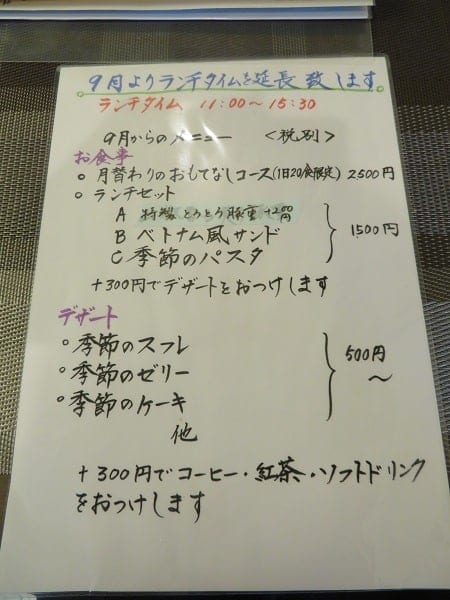 9月よりランチタイムを延長致します
ランチタイム 11:00〜15:30
9月からのメニュー <税別>
お食事
○ 月替わりのおもてなしコース(1日20食限定) 2500円
○ ランチセット
A 特製とろとろ豚重 +200円
B ベトナム風サンド
C 季節のパスタ
1500円
+300円でデザートをおつけします
デザート
○季節のスフレ
○季節のゼリー
○季節のケーキ
他
500円〜
+300円でコーヒー・紅茶・ソフトドリンク
をおつけします